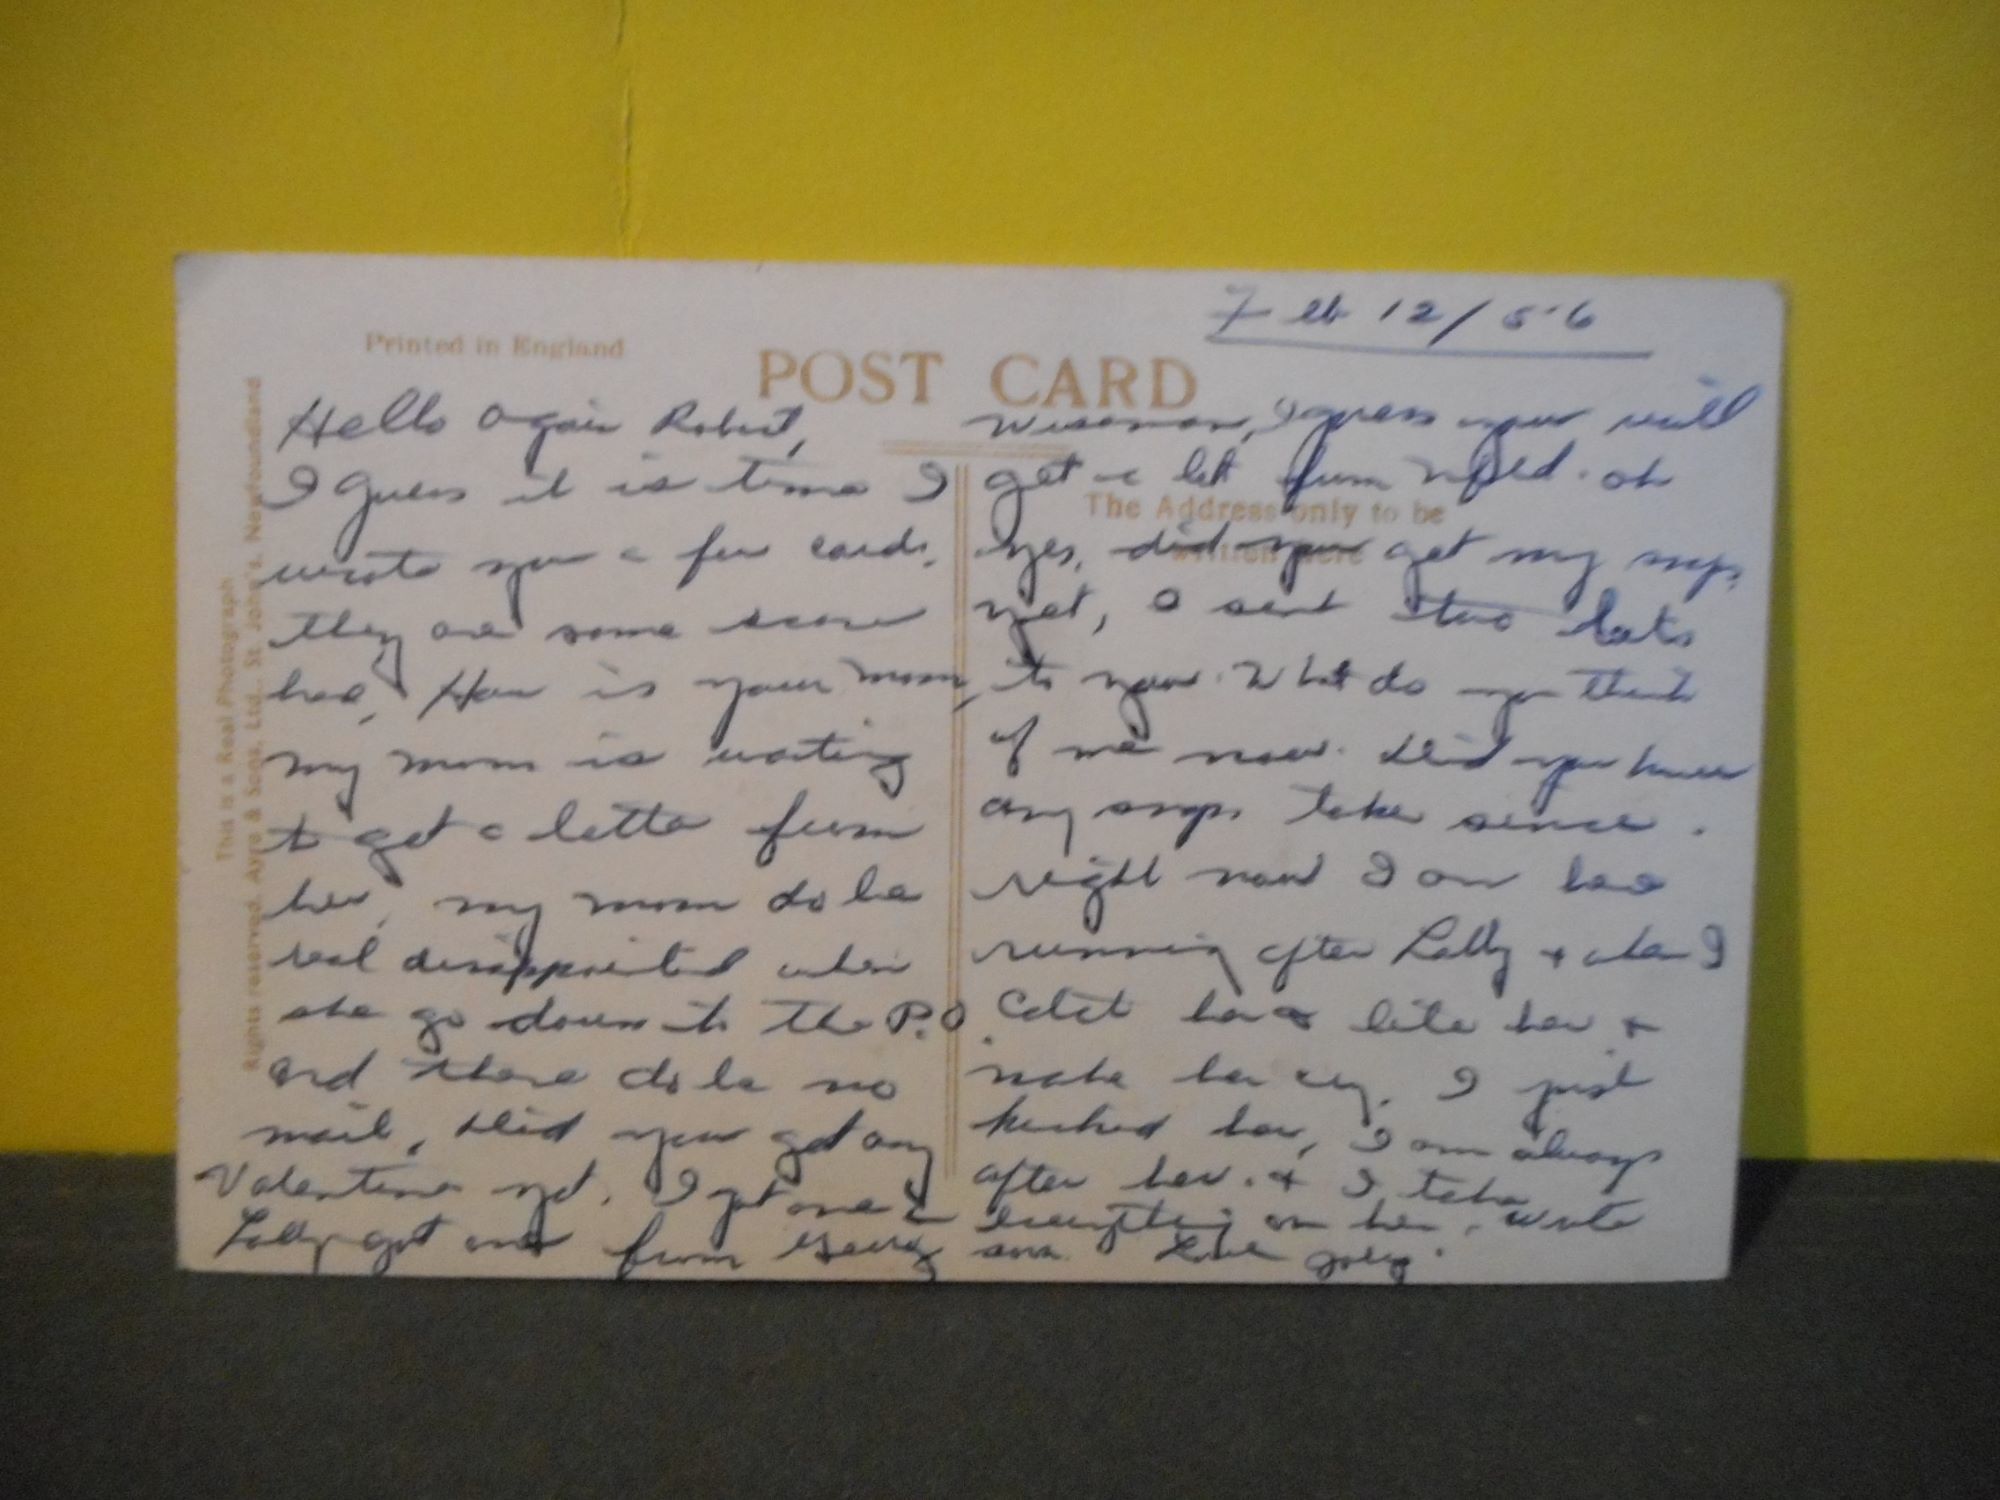 Feb 12/56
Printed in England
POST CARD
This is a Real Photograph
Rights reserved. Ayre & Sons, Ltd., St. John's, Newfoundland
The Address only to be
written here
Hello again Robert,
I guess it is time I
wrote you a few cards.
they are some scarce
here, How is your mom,
my mom is waiting
to get a letter from
her, my mom do be
real disappointed when
she go down to the P.O.
and there do be no
mail, Did you get any
Valentine yet. I got one &
Lolly got one from
Wiseman, I guess you will
get a lot from Nfld. oh
yes, did you get my snaps
yet, I sent two lots
to you. What do you think
of me now. Did you have
any snaps take since.
right now I am
running after Lolly & when I
her &
make her cry. I just
her, I am always
after her. & I take
everything on her. write
soon Love